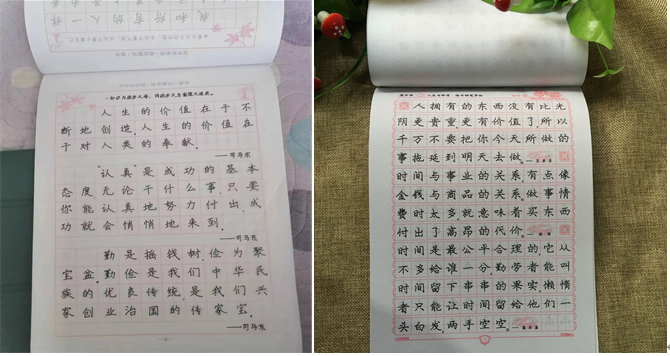 我和所有的人一样
人生的价值在于不
断地创造,人生的价值在
于对人类的奉献。
——司马东
“认真”是成功的基本
态度,无论干什么事,只要
你能认真地努力付出,成
功就会悄悄地来到。
——司马东
勤是摇钱树,俭为聚
宝盆。勤俭是我们中华民
族的优良传统,是我们兴
家创业治国的传家宝。
——司马东
人拥有的东西没有比光
阴更贵重更有价值了,所以
千万不要把你今天所做的
事拖延到明天去做。
时间与事业的关系,有点像
金钱与商品的关系。做事情
费时太多就意味着买东西
付出了高昂的代价。
时间是最公平合理的,它从
不多给谁一分。勤劳者能叫
时间留下串串的果实,懒惰
者只能让时间留给他们一
头白发,两手空空。